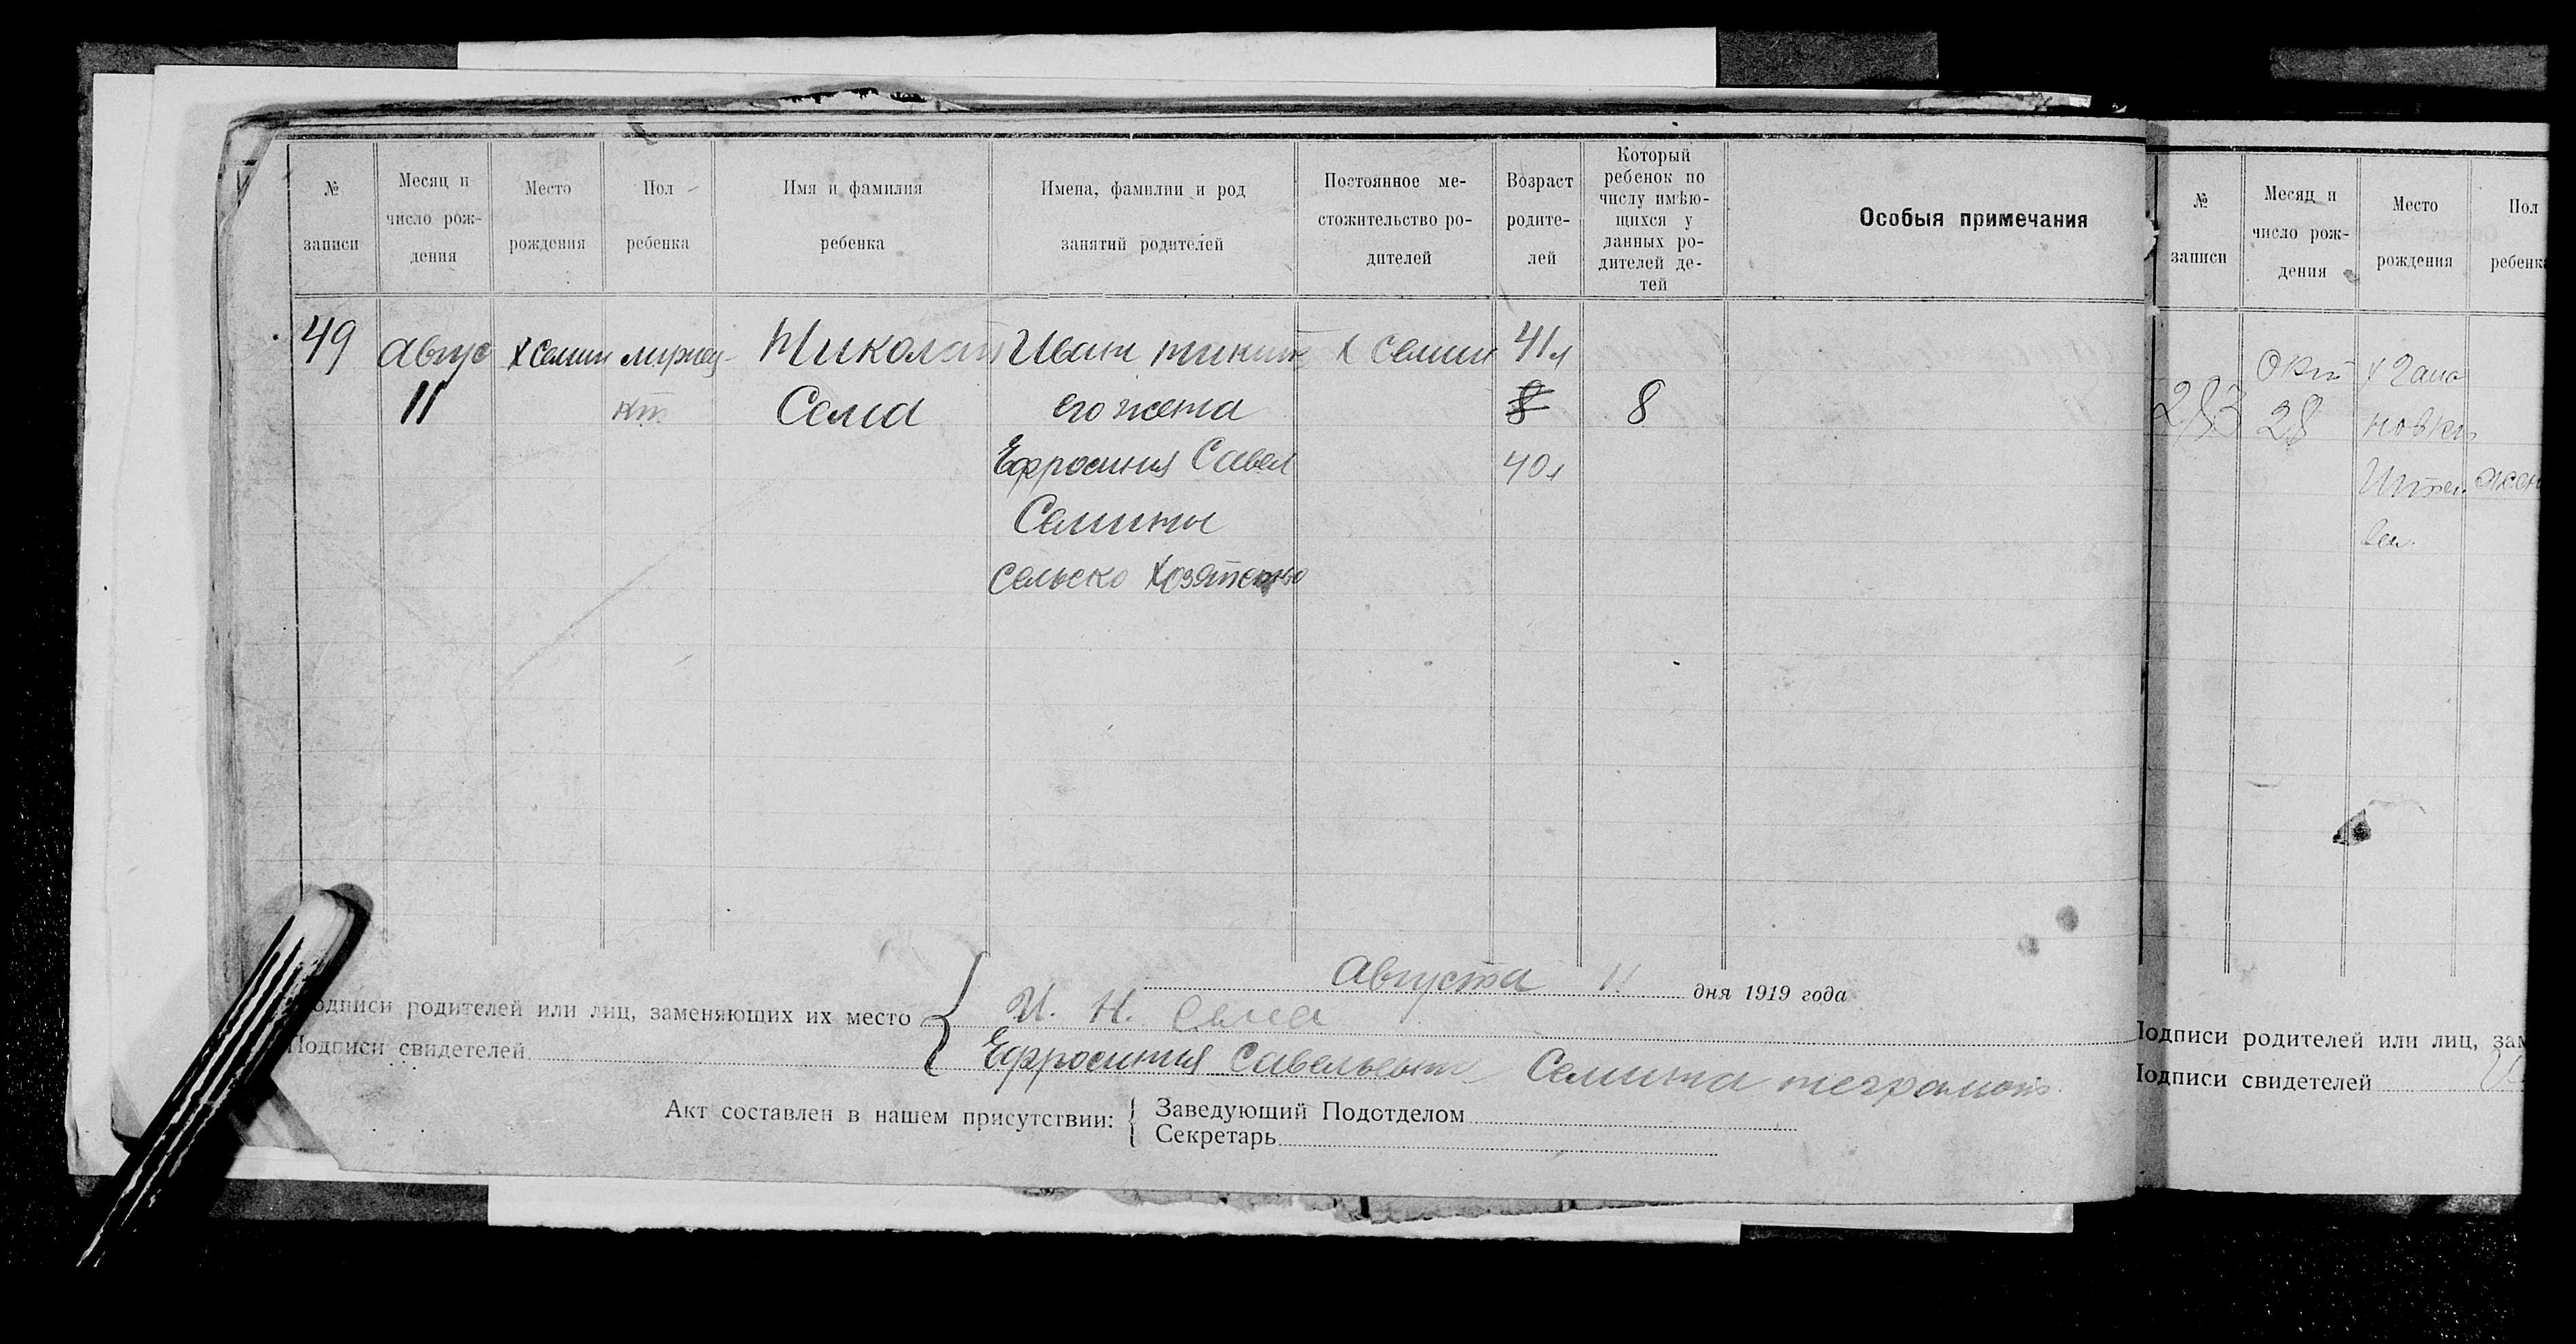 № записи
Месяц и число рождения
Место рождения
Пол ребенка
Имя и фамилия ребенка
Имена, фамилии и род занятий родителей
Постоянное местожительство родителей
Возраст родителей
Который ребенок по числу имѣющихся у данных родителей детей
Особыя примечания
49 Авгус х Семин Николай Иван никит х Семин 41 л
11 Сема его жена 8 8
Ефросиния Савел 40 л
Семины
сельско хозяйство
Августа 11 дня 1919 года
одписи родителей или лиц, заменяющих их место И. Н. Сема
Подписи свидетелей Ефросиния Савельевн Семина неграмот
Акт составлен в нашем присутствии: Заведующий Подотделом
Секретарь
№ записи
Месяц и число рождения
Место рождения
Пол ребенк
283
Окт
28
х Гано
новка
жен
вол.
Подписи родителей или лиц, зам
Подписи свидетелей